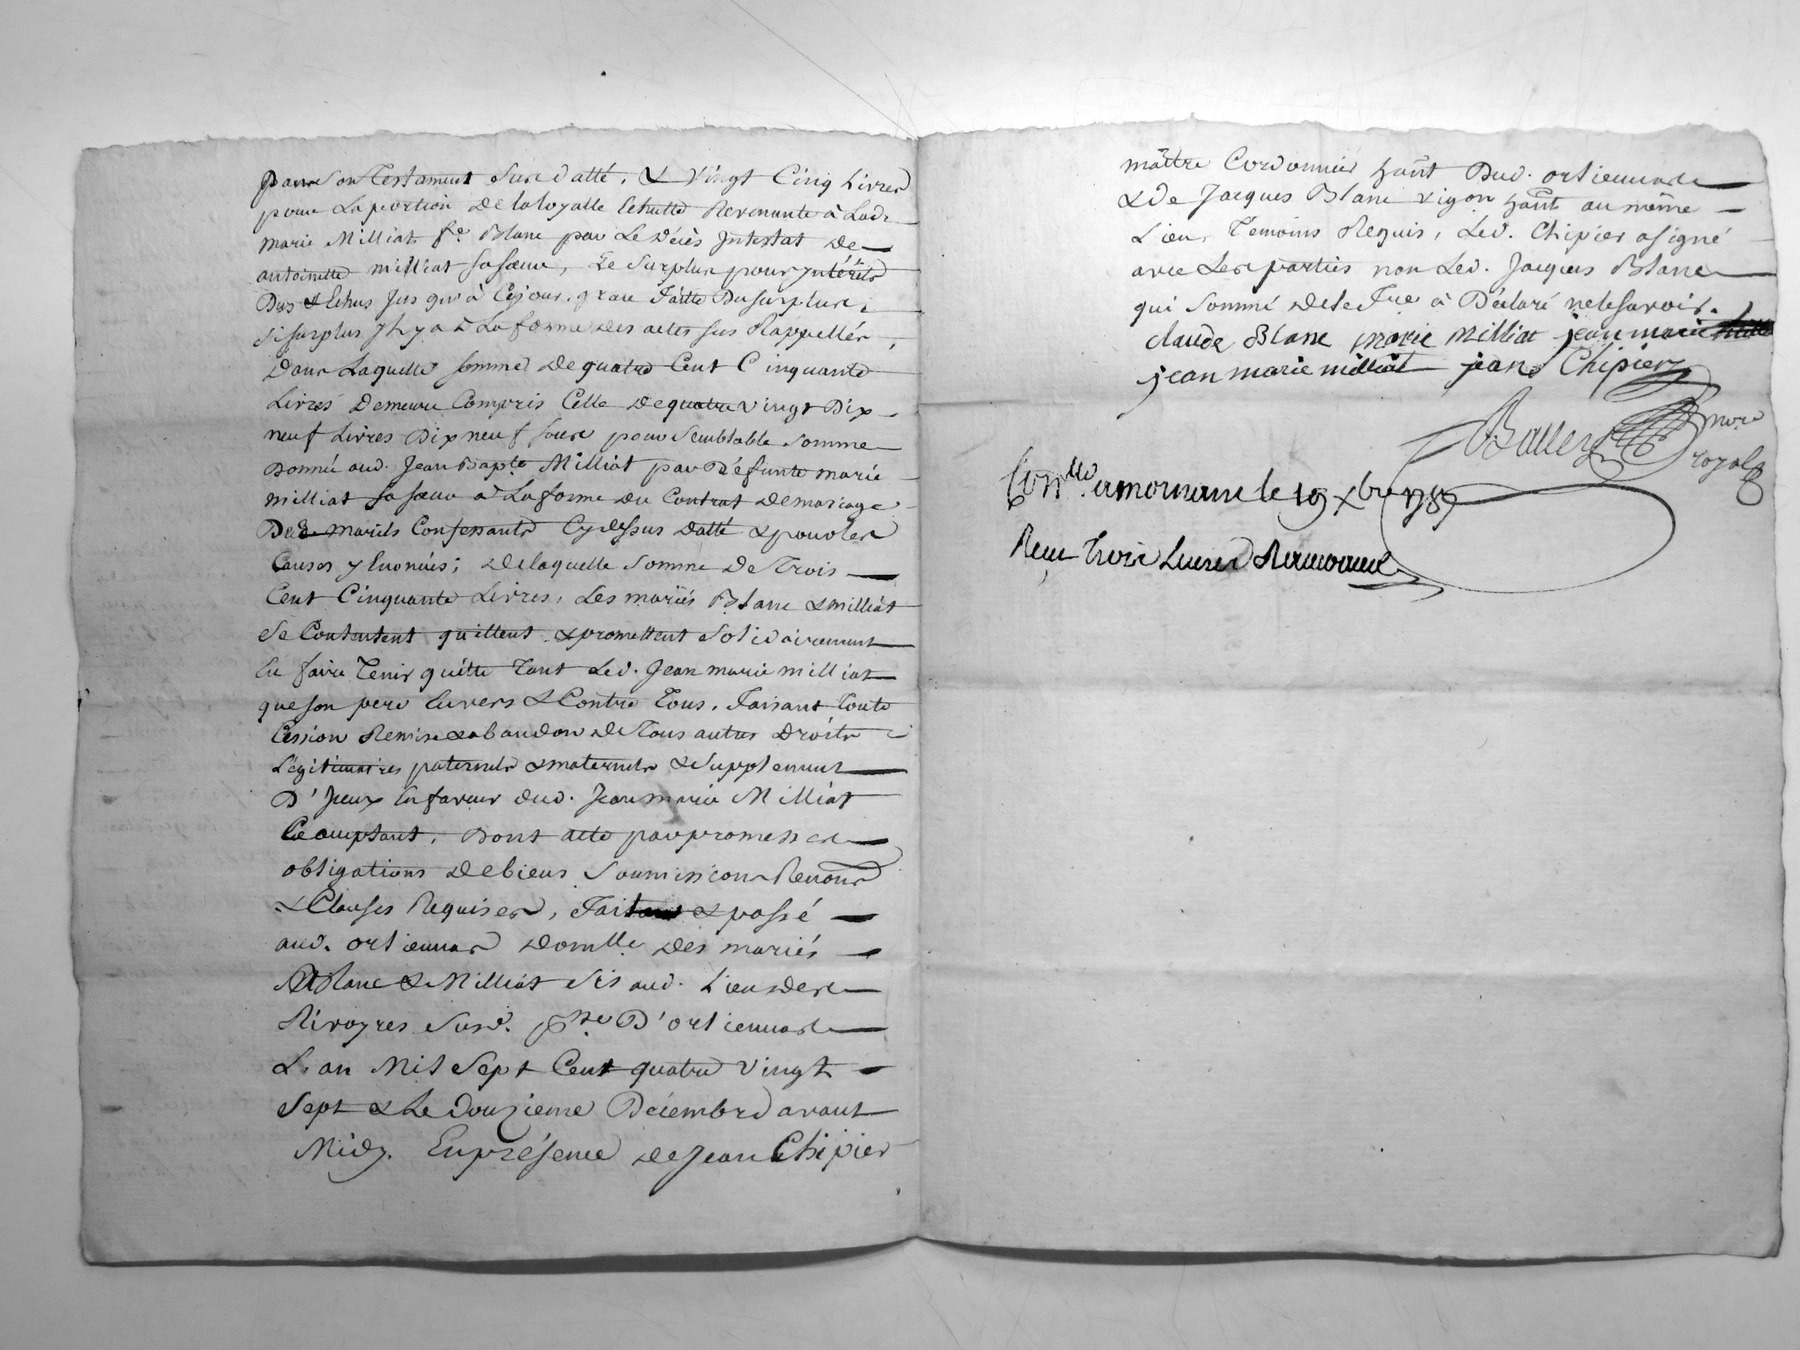 par son Testament Susd atté, & Vingt Cinq Livres
pour La portion de la loyalle Echutte Revenante à Lad.
marie Milliat fe. Blanc par Le Décès Intestat de
antoinette milliat sa sœur, Le Surplus pour Intérêts
Dus & Echus Jus qu'à Cejour, grace faitte Du surplus,
si surplus Il y a à La forme des actes sus Rappellés,
Dans Laquelle somme de quatre Cent Cinquante
Livres Demeure Compris Celle de quatre vingt Dix
neuf Livres Dix neuf sous pour semblable somme
Donnée aud. Jean Bapte. Milliat par Défunte marie
milliat sa sœur à La forme du Contrat de mariage
Desd. mariés Confessants Cy dessus datté & pour les
Causes y Enoncées; de laquelle somme de Trois
Cent Cinquante Livres, Les mariés Blanc & milliat
se Contentent quittent & promettent solidairement
En faire Tenir quitte Tant Led. Jean marie milliat
que son pere Envers & Contre Tous, faisant Toute
Cession Remise & abandon de Tous autres Droits
Légitimaires paternels & maternels & supplement
D'Iceux En faveur dud. Jean marie Milliat
Ce acceptant, Dont acte par promesses
obligations de biens soumissions Renons
& Clauses Requises, fait & passé
aud. orlienas domlle. des mariés
Blanc & Milliat sis aud. Lieu des
Rivoyres susd. psse. D'orlienas
L'an Mil Sept Cent quatre vingt
Sept & Le douzieme Décembre avant
Midy. En présence de Jean Chipier
maître Cordonnier hant. Dud. orlienas
& de Jacques Blanc vigon hant. au même
Lieu, Témoins Requis, Led. Chipier a signé
avec Les parties non Led. Jacques Blanc
qui sommé de le fre. à Déclaré ne le savoir.
claude Blanc marie Milliat jean marie
jean marie milliat jean Chipier
nore
royal
Conllé. a mornant le 19 Xbre 1787
Recu Trois Livres